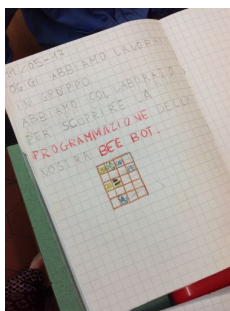 11/05-17
OGGI ABBIAMO LAVORATO
IN GRUPPO.
ABBIAMO COLLABORATO
PER SCOPRIRE LA
PROGRAMMAZIONE DELLA
NOSTRA BEE BOT.